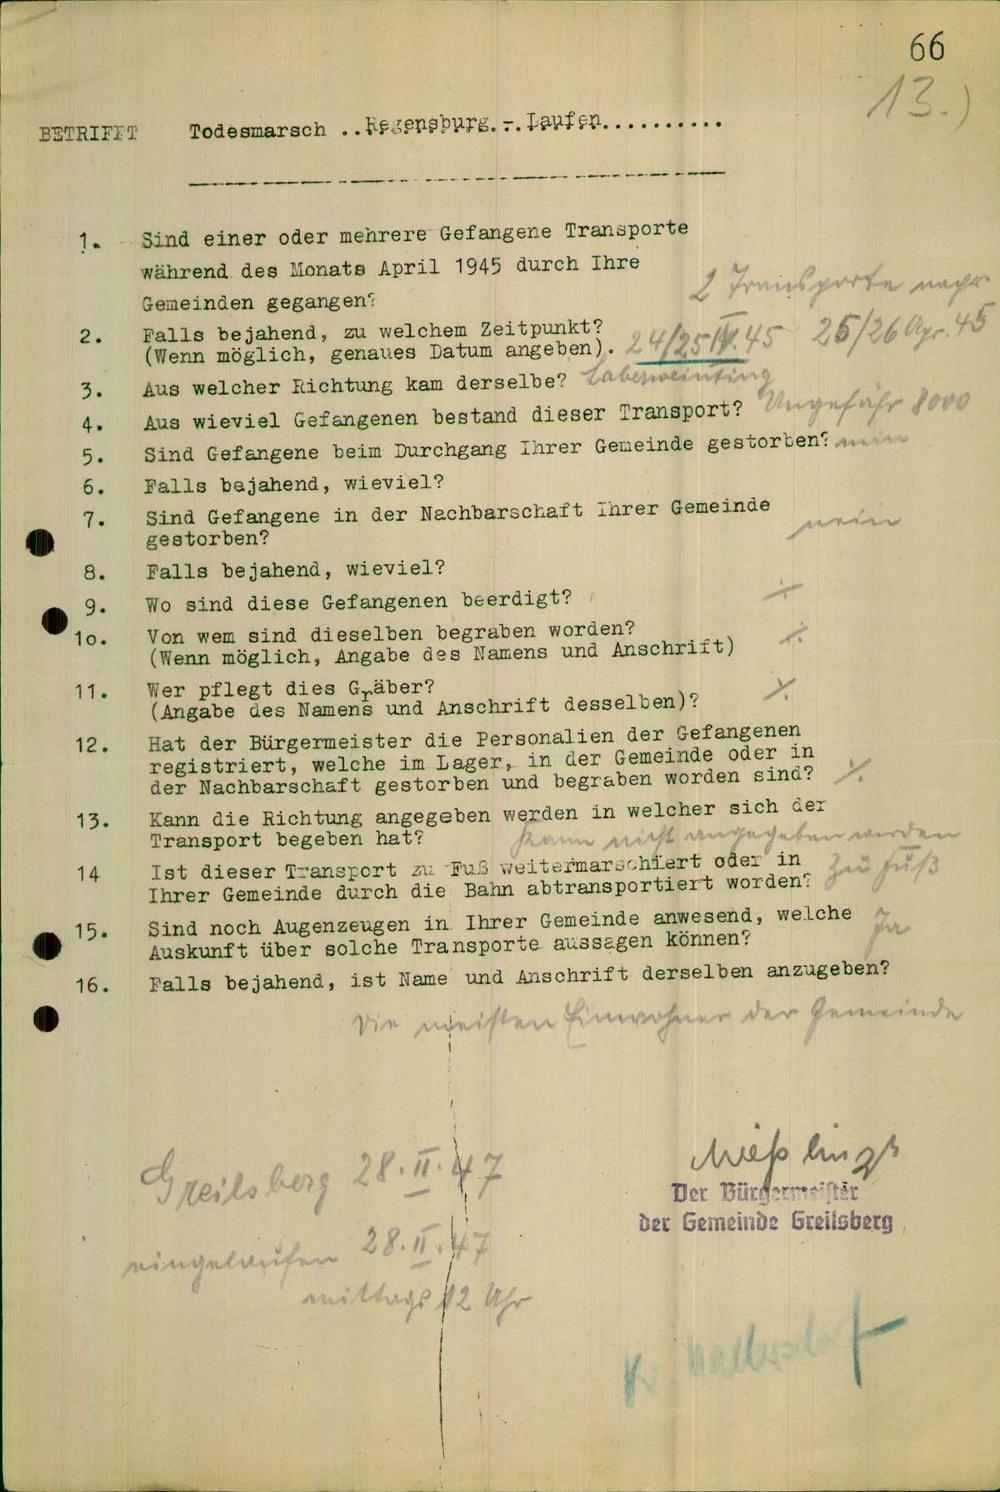 66
13.)
BETRIFFT Todesmarsch ..Regensburg.-.Laufen..........
1. Sind einer oder mehrere Gefangene Transporte
während des Monats April 1945 durch Ihre
Gemeinden gegangen? 2 Transporte nachts
2. Falls bejahend, zu welchem Zeitpunkt?
(Wenn möglich, genaues Datum angeben). 24/25 IV. 45 25/26 Apr. 45
3. Aus welcher Richtung kam derselbe? Laberweinting
4. Aus wieviel Gefangenen bestand dieser Transport? Ungefähr 8000
5. Sind Gefangene beim Durchgang Ihrer Gemeinde gestorben? nein
6. Falls bejahend, wieviel?
7. Sind Gefangene in der Nachbarschaft Ihrer Gemeinde
gestorben? nein
8. Falls bejahend, wieviel?
9. Wo sind diese Gefangenen beerdigt?
1o. Von wem sind dieselben begraben worden?
(Wenn möglich, Angabe des Namens und Anschrift)
11. Wer pflegt dies Gräber?
(Angabe des Namens und Anschrift desselben)?
12. Hat der Bürgermeister die Personalien der Gefangenen
registriert, welche im Lager, in der Gemeinde oder in
der Nachbarschaft gestorben und begraben worden sind?
13. Kann die Richtung angegeben werden in welcher sich der
Transport begeben hat? Kann nicht angegeben werden
14 Ist dieser Transport zu Fuß weitermarschiert oder in
Ihrer Gemeinde durch die Bahn abtransportiert worden? Zu Fuß
15. Sind noch Augenzeugen in Ihrer Gemeinde anwesend, welche
Auskunft über solche Transporte aussagen können? Ja
16. Falls bejahend, ist Name und Anschrift derselben anzugeben?
Die meisten Einwohner der Gemeinde
Greilsberg 28.II.47
Der Bürgermeister
der Gemeinde Greilsberg
eingelaufen 28.II.47
mittags 12 Uhr
Kr. Mallersdorf